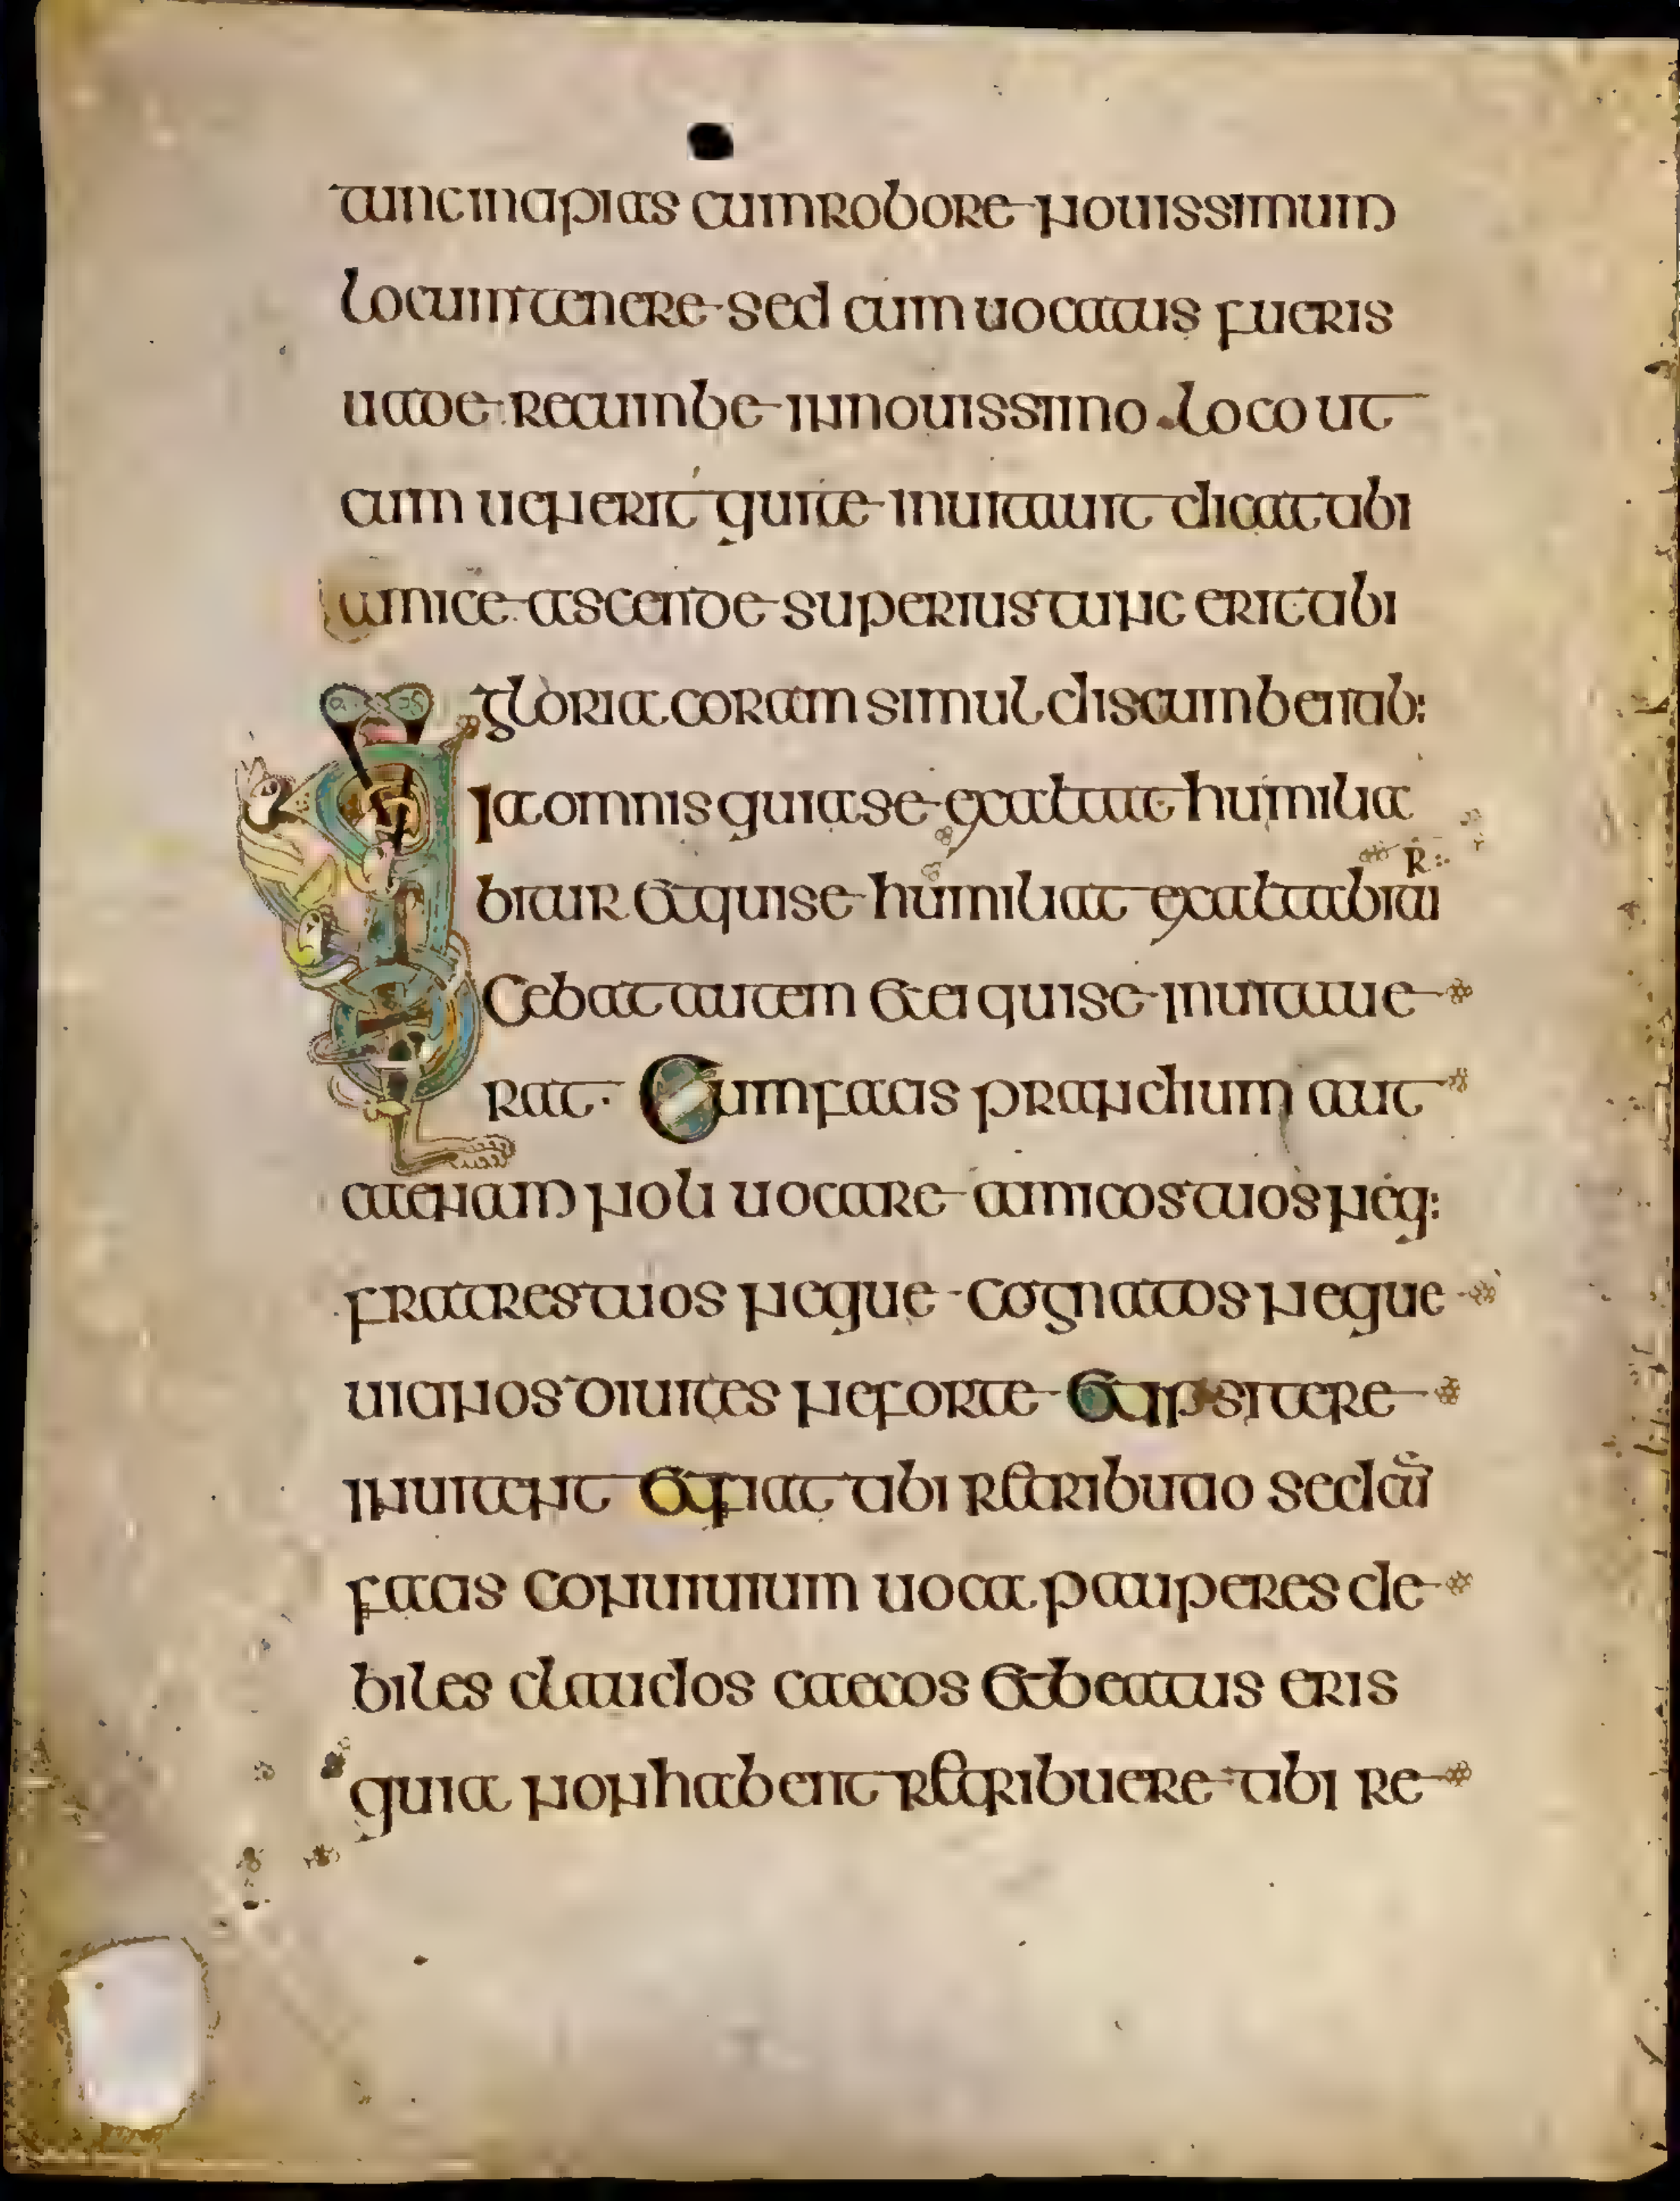 tunc incipias cum robore novissimum
locum tenere sed cum uocatus fueris
uade recumbe in nouissimo loco ut
cum uenerit qui te inuitauit dicat tibi
amice ascende superius tunc erit tibi
gloria coram simul discumbentib:
Quia omnis qui a se exaltat humilia
bitur et qui se humiliat exaltabitur
Dicebat autem et ei qui se inuitaue
rat · Cum facis prandium aut
cienam noli uocare amicos tuos neq:
fratres tuos neque cognatos neque
uicinos diuites ne forte et ipsi te re
inuitent et fiat tibi retributio sed cū
facis conuiuium uoca pauperes de
biles claudos caecos et beatus eris
quia non habent retribuere tibi re